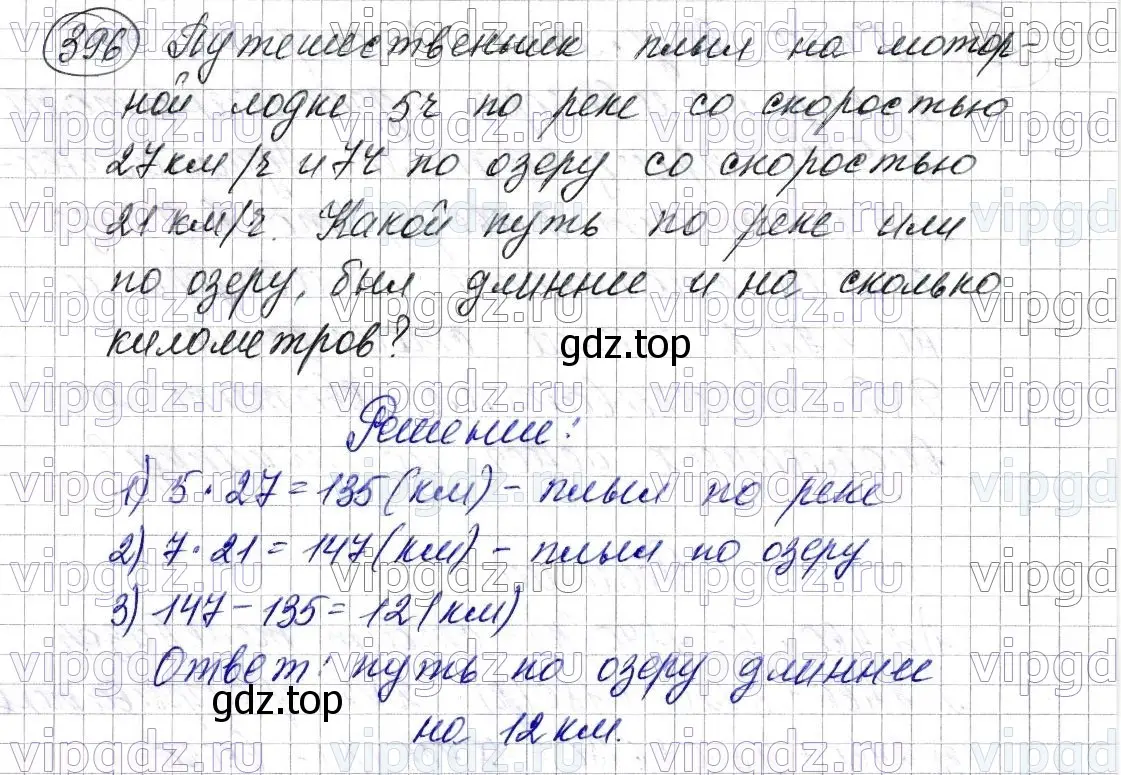 396 Путешественник плыл на мотор-
ной лодке 5ч по реке со скоростью
27км/ч и 7ч по озеру со скоростью
21км/ч. Какой путь по реке или
по озеру, был длиннее и на сколько
километров?
gdz.top
Решение:
1) 5·27=135(км) - плыл по реке
2) 7·21=147(км) - плыл по озеру
3) 147-135=12(км)
Ответ: путь по озеру длиннее
gdz.top
на 12км.
vipgdz.ru